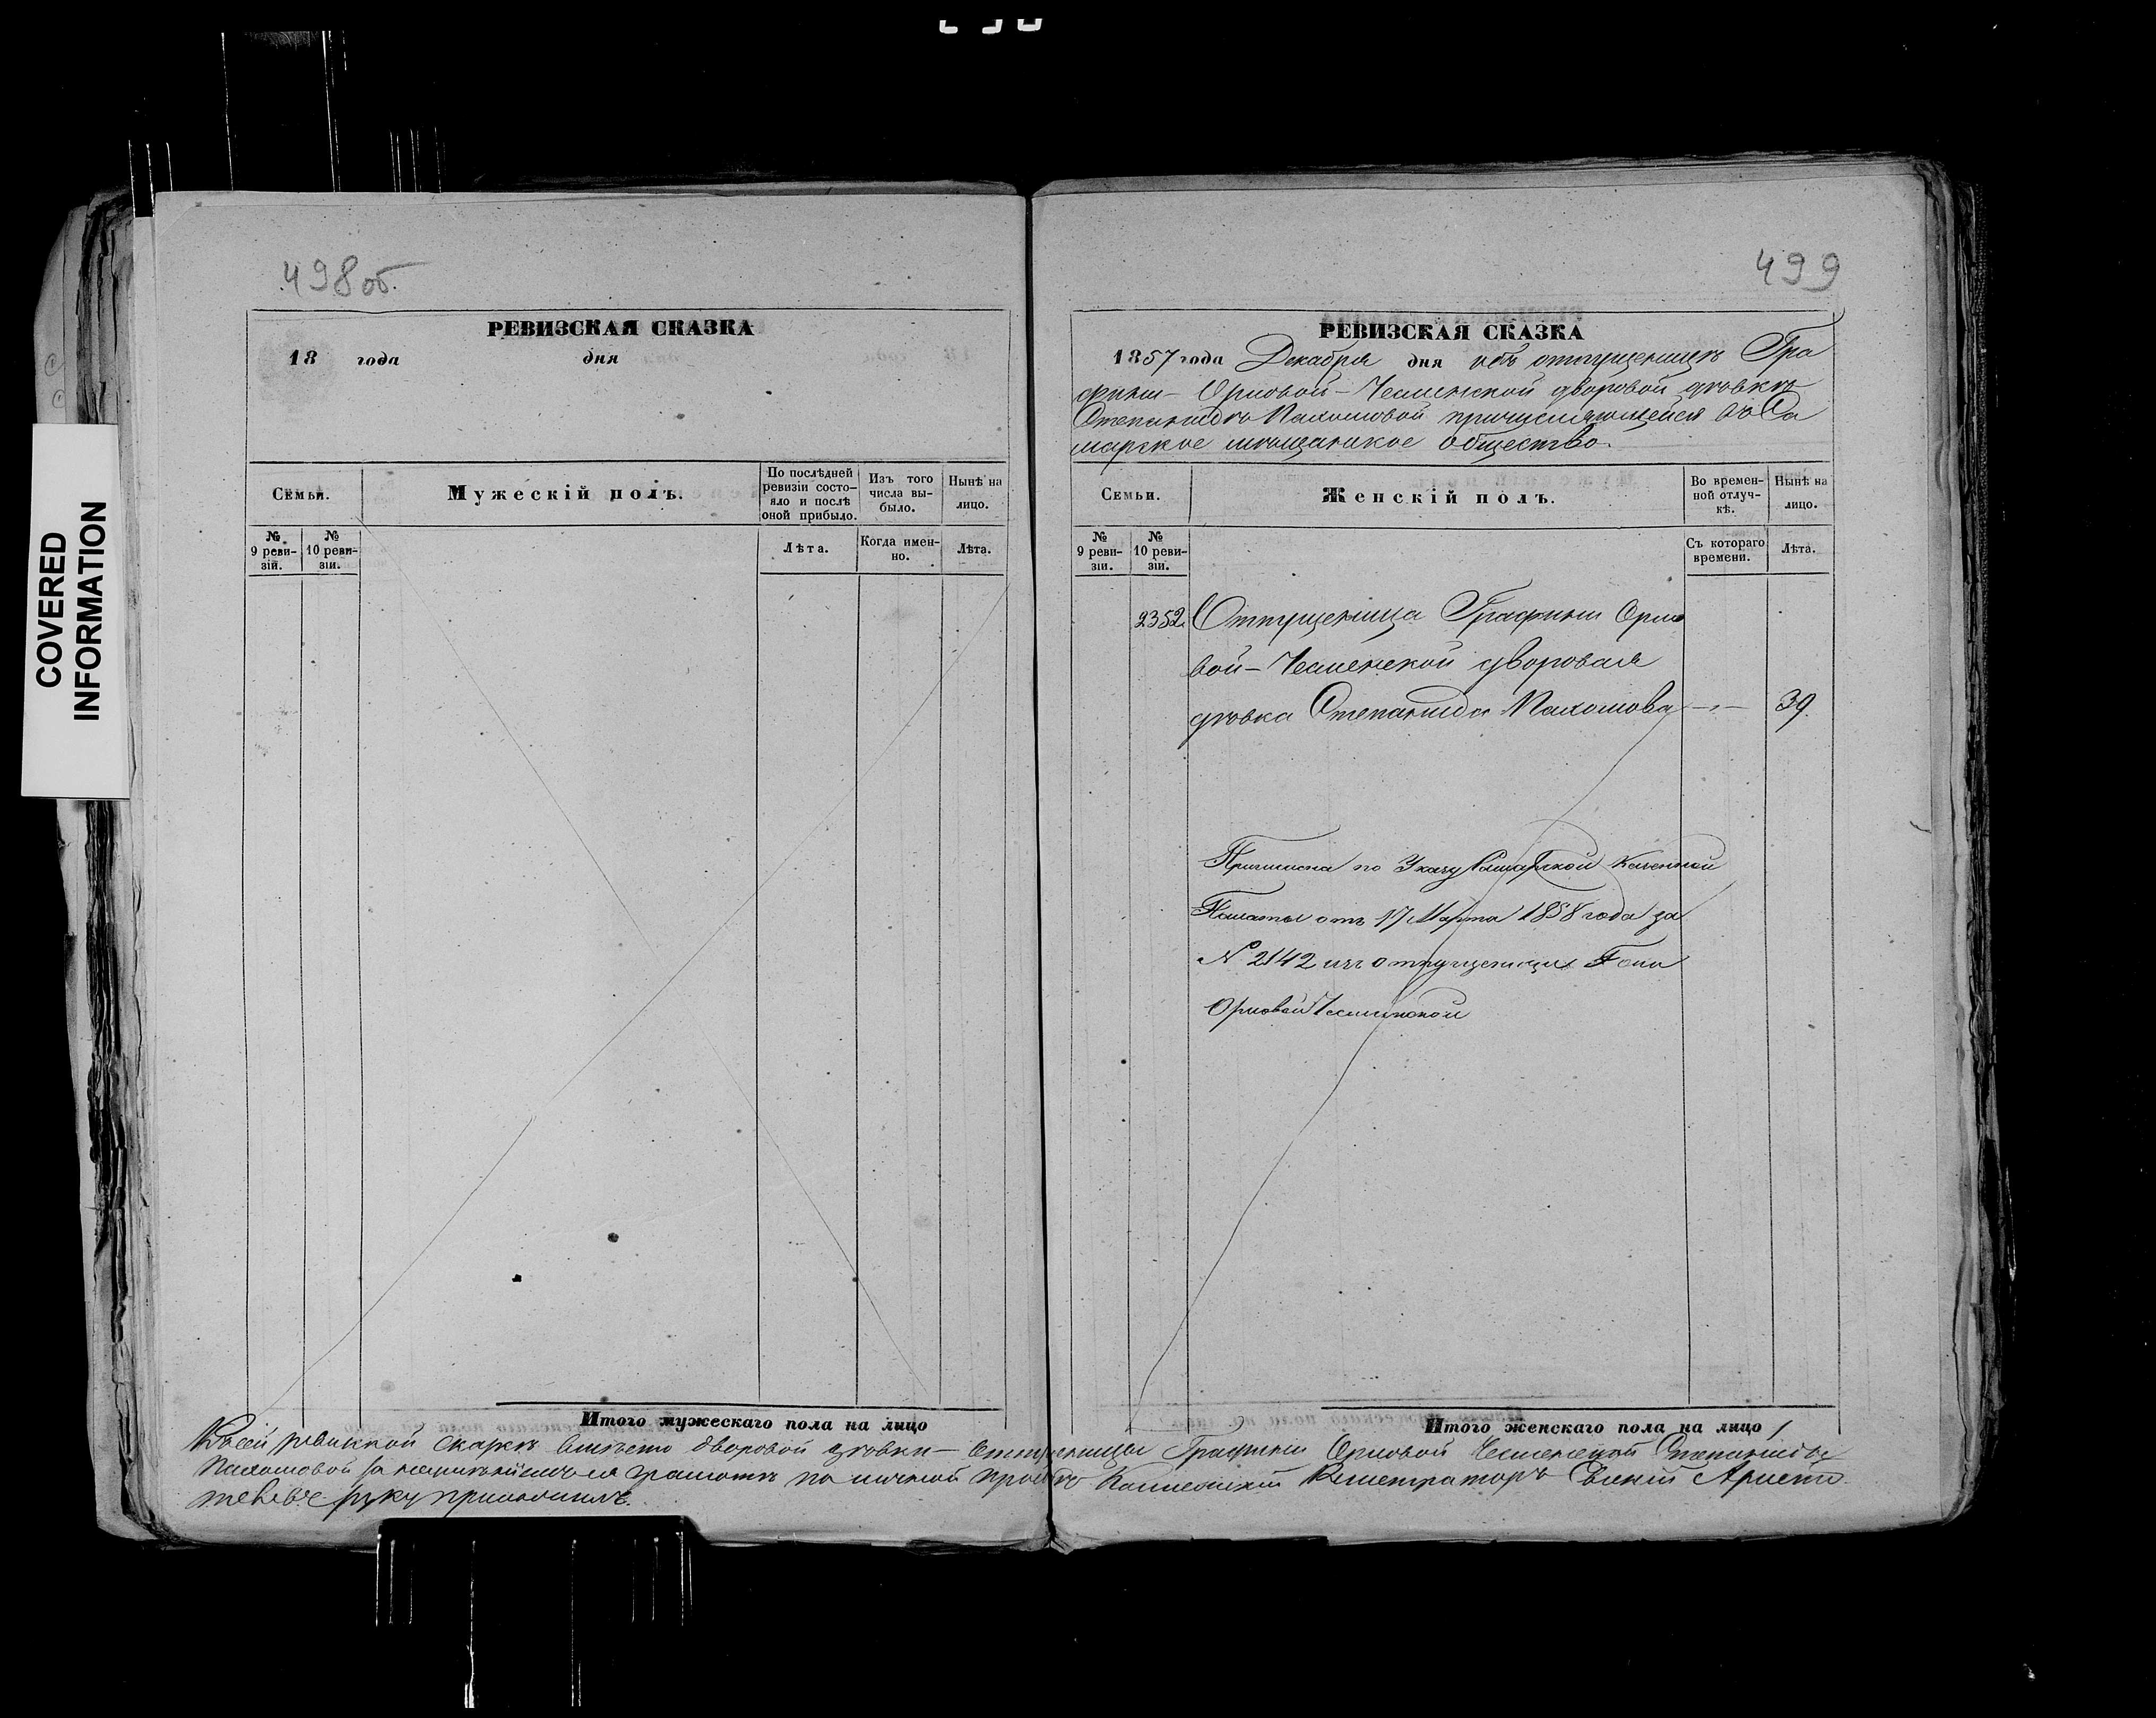 COVERED
INFORMATION
498 об.
РЕВИЗСКАЯ СКАЗКА
18 года дня
Семьи.
Мужескій полъ.
По послѣдней ревизіи состояло и послѣ оной прибыло.
Изъ того числа выбыло.
Нынѣ на лицо.
№ 9 ревизіи.
№ 10 ревизіи.
Лѣта.
Когда именно.
Лѣта.
Итого мужескаго пола на лицо
499
РЕВИЗСКАЯ СКАЗКА
1857 года Декабря дня объ отпущеницѣ Гра
фини Орловой-Чесменской дворовой дѣвкѣ
Степанидѣ Пахомовой причисляющейся въ Са
марское мѣщанское общество.
Семьи.
Женскій полъ.
Во временной отлучкѣ.
Нынѣ на лицо.
№ 9 ревизіи.
№ 10 ревизіи.
Съ котораго времени.
Лѣта.
2352. Отпущеница Графини Орло
вой-Чесменской дворовая
дѣвка Степанида Пахомова — 39.
Причислена по Указу Самарской Казенной
Палаты отъ 17 Марта 1858 года за
№ 2142 изъ отпущеницъ
Орловой Чесменской
Итого женскаго пола на лицо 1
Къ сей ревизской сказкѣ вмѣсто дворовой дѣвки — Отпущеницы Графини Орловой Чесменской Степаниды
Пахомовой за неумѣніемъ ея грамотѣ по личной просьбѣ Коллежскій Регистраторъ
руку приложилъ.